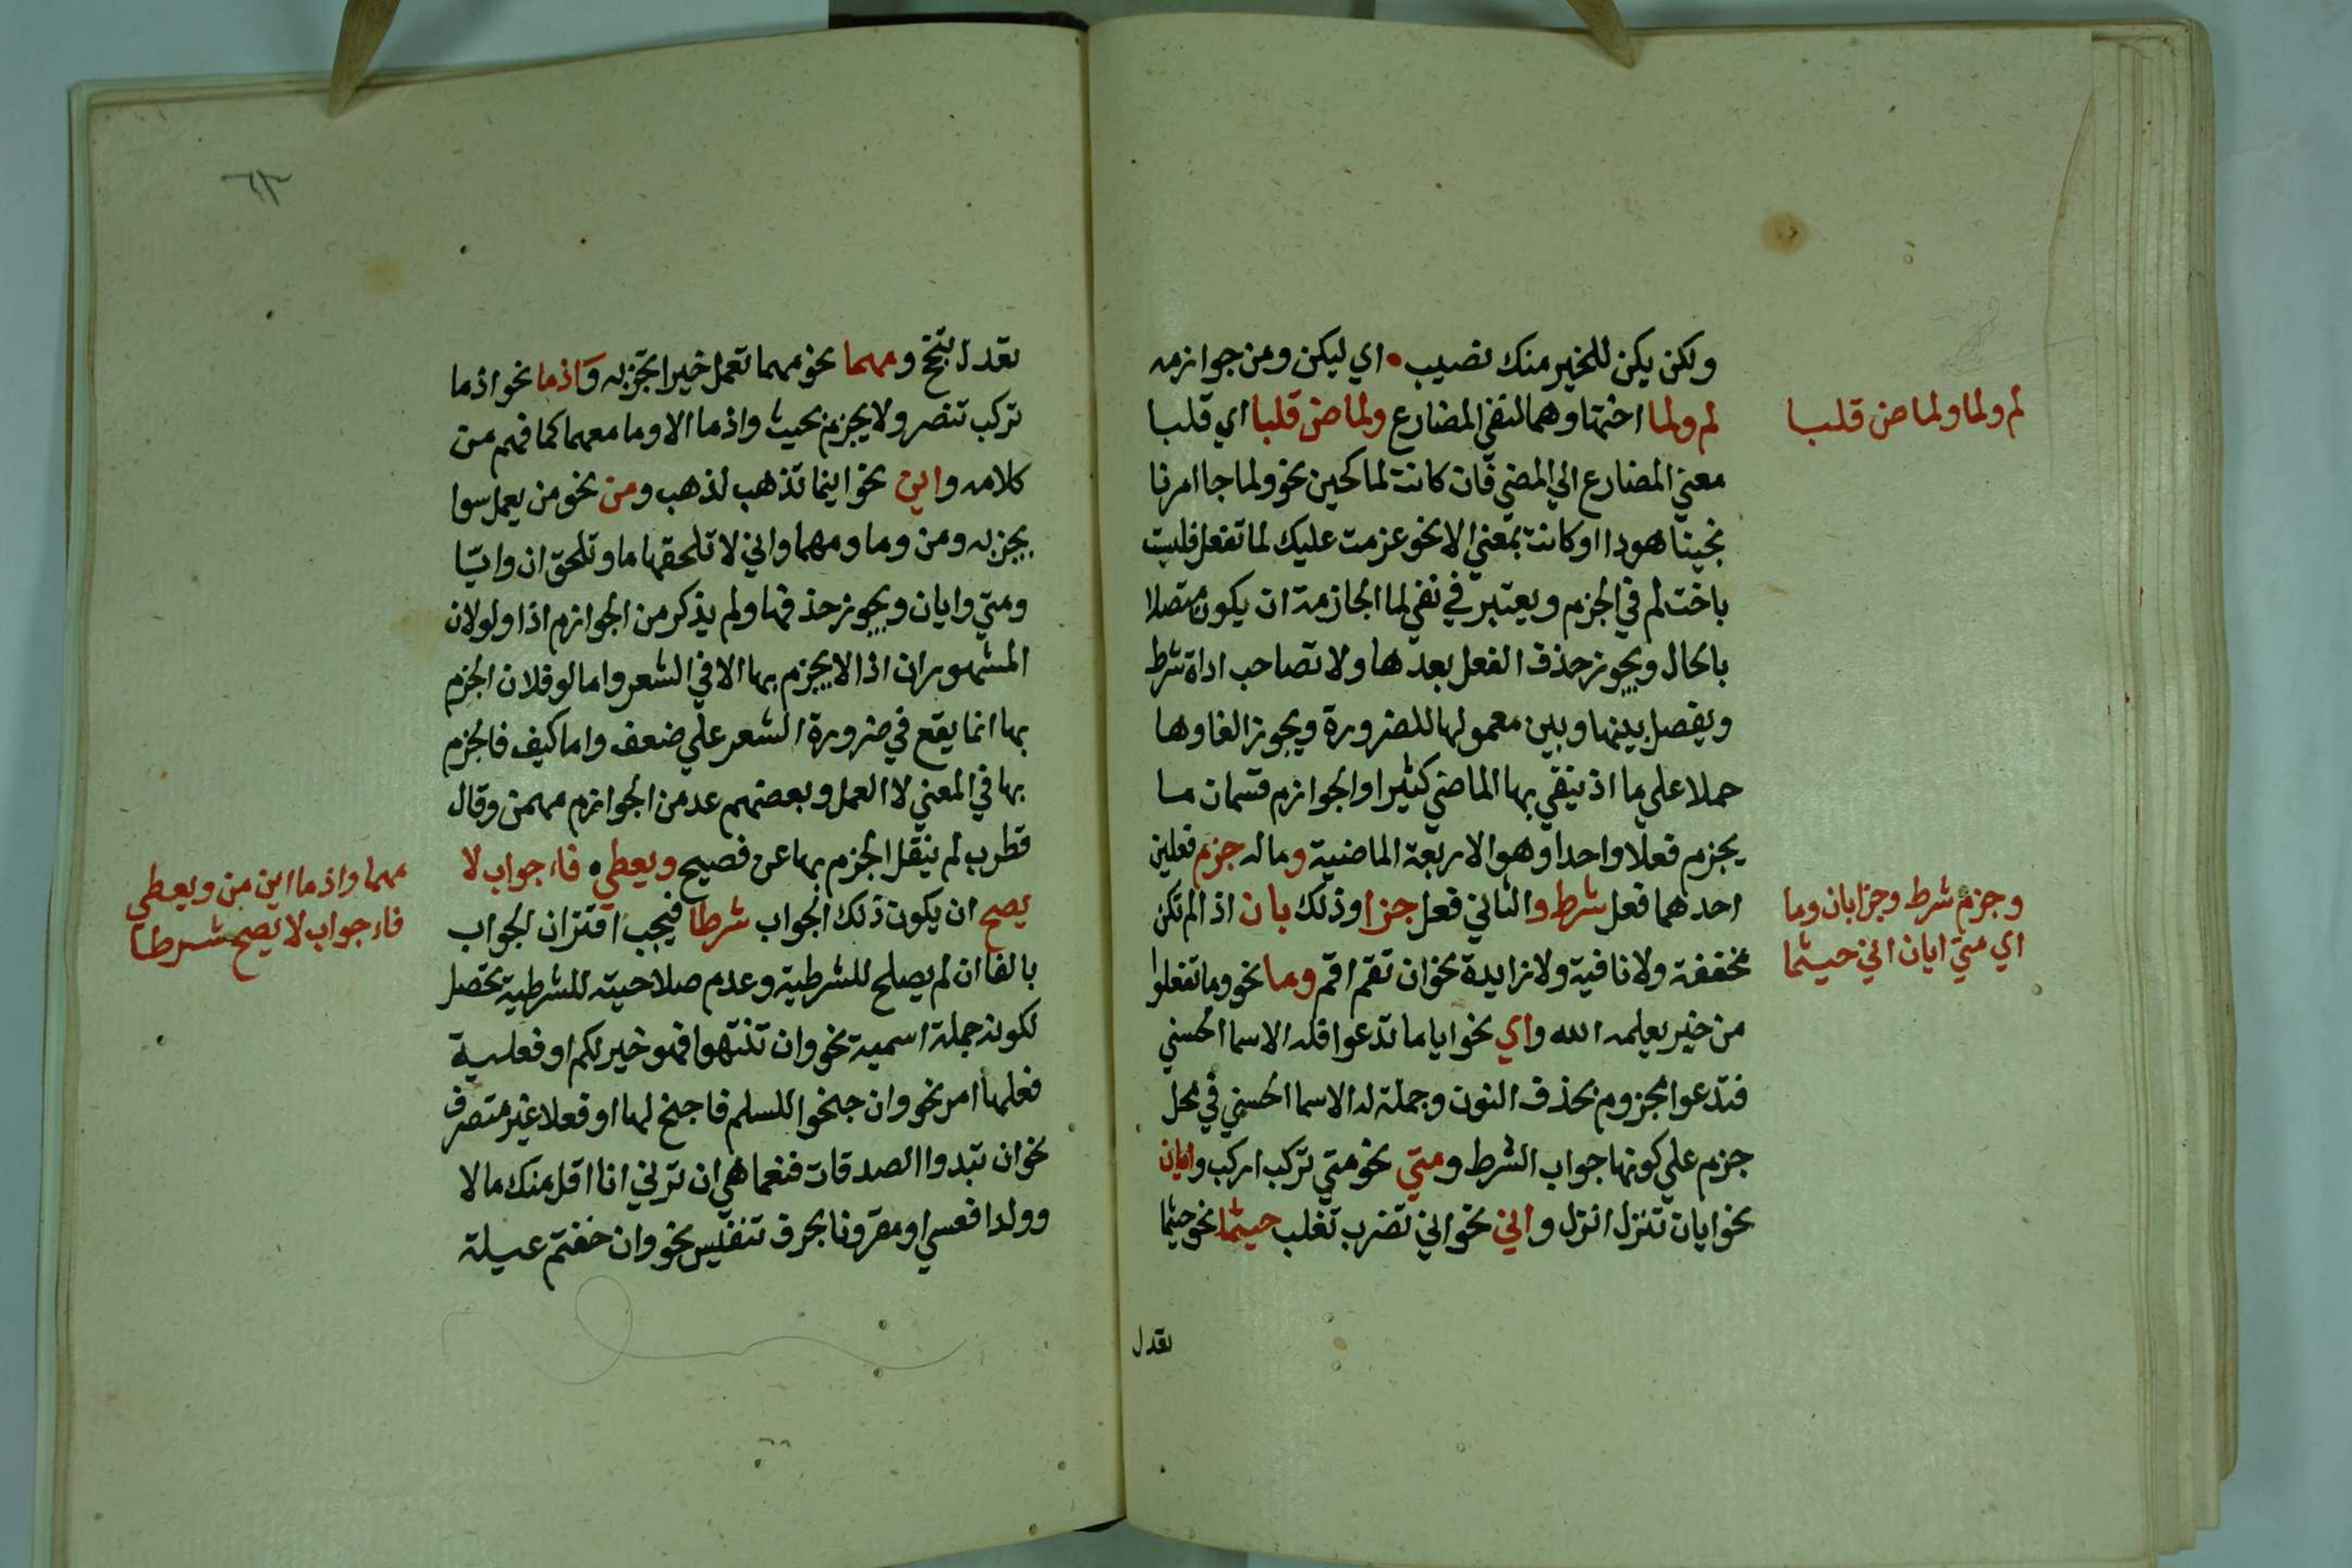 ولكن يكن للخير منك نصيب • اي ليكن ومن جوازمه
لم ولما اختها وهما لنفي المضارع ولماض قلبا اي قلبا
معني المضارع الي المضي فان كانت لما كحين نحو ولما جا امرنا
نجينا هودا او كانت بمعني الا نحو عزمت عليك لما تفعل فليست
باخت لم في الجزم ويعتبر في نفي لما الجازمة ان يكون متصلا
بالحال ويجوز حذف الفعل بعدها ولا تصاحب اداة شرط
ويفصل بينها وبين معمولها للضرورة ويجوز الغاوها
حملا علي ما اذ ينفي بها الماضي كثيرا والجوازم قسمان ما
يجزم فعلا واحدا وهو الاربعة الماضية وما له جزم فعلين
احدهما فعل شرط والثاني فعل جزا وذلك بان اذا لم تكن
مخففة ولا نافية ولا زايدة نحو ان تقم اقم وما نحو وما تفعلوا
من خير يعلمه الله واي نحو ايا ما تدعوا فله الاسما الحسني
فتدعوا مجزوم بحذف النون وجملة له الاسما الحسني في محل
جزم علي كونها جواب الشرط ومتي نحو متي تركب اركب وايان
نحو ايان تنزل انزل واني نحو اني تضرب تغلب حيثما نحو حيثما
تعدل
لم ولما ولماض قلبا
وجزم شرط وجزا بان وما
اي متي ايان اني حيثما
٦٣
تعدل تنجح ومهما نحو مهما تعمل خيرا تجز به واذما نحو اذما
تركب تنصر ولا يجزم بحيث واذ ما الا وما معهما كما فهم من
كلامه واين نحو اينما تذهب اذهب ومن نحو من يعمل سوا
يجز به ومن وما ومهما واني لا تلحقها ما وتلحق ان وايا
ومتي وايان ويجوز حذفها ولم يذكر من الجوازم اذا ولو لان
المشهور ان اذا لا يجزم بها الا في الشعر واما لو فلان الجزم
بها انما يقع في ضرورة الشعر علي ضعف واما كيف فالجزم
بها في المعني لا العمل وبعضهم عد من الجوازم مهمن وقال
قطرب لم ينقل الجزم بها عن فصيح ويعطي فاء جواب لا
يصح ان يكون ذلك الجواب شرطا فيجب اقتران الجواب
بالفا ان لم يصلح للشرطية وعدم صلاحيته للشرطية تحصل
لكونه جملة اسمية نحو وان تنتهوا فهو خير لكم او فعلية
فعلها امر نحو وان جنحوا للسلم فاجنح لها او فعلا غير متصرف
نحو ان تبدوا الصدقات فنعما هي ان ترني انا اقل منك مالا
وولدا فعسي او مقرونا بحرف تنفيس نحو وان خفتم عيلة
مهما واذما اين من ويعطي
فاء جواب لا يصح شرطا